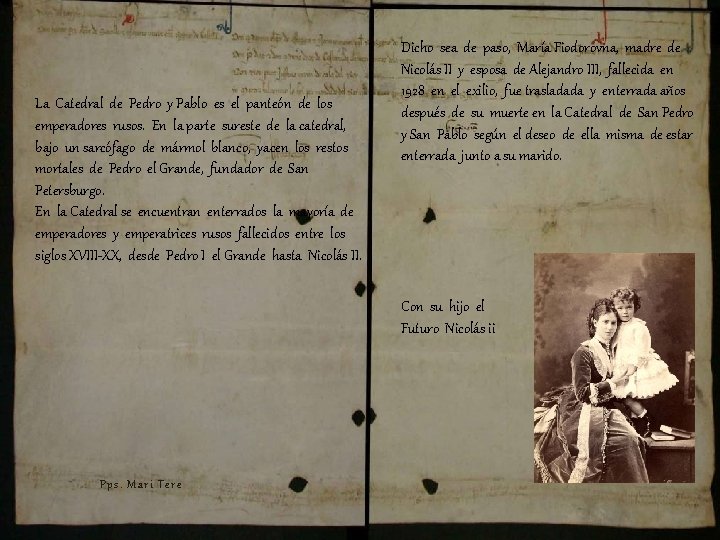 La Catedral de Pedro y Pablo es el panteón de los
emperadores rusos. En la parte sureste de la catedral,
bajo un sarcófago de mármol blanco, yacen los restos
mortales de Pedro el Grande, fundador de San
Petersburgo.
En la Catedral se encuentran enterrados la mayoría de
emperadores y emperatrices rusos fallecidos entre los
siglos XVIII-XX, desde Pedro I el Grande hasta Nicolás II.
Pps. Mari Tere
Dicho sea de paso, María Fiodorovna, madre de
Nicolás II y esposa de Alejandro III, fallecida en
1928 en el exilio, fue trasladada y enterrada años
después de su muerte en la Catedral de San Pedro
y San Pablo según el deseo de ella misma de estar
enterrada junto a su marido.
Con su hijo el
Futuro Nicolás ii